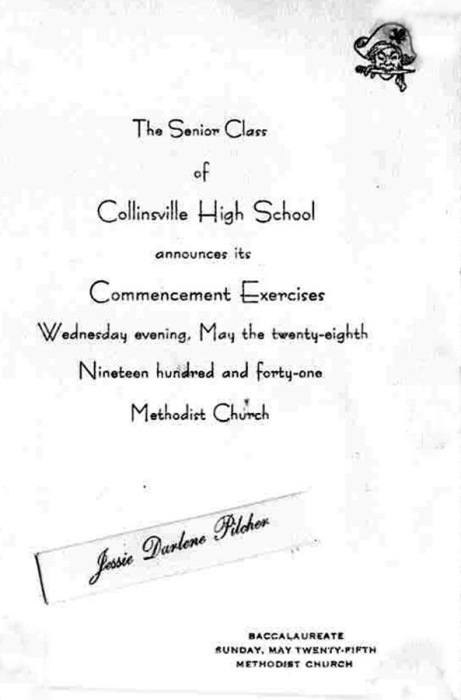 The Senior Class
of
Collinsville High School
announces its
Commencement Exercises
Wednesday evening, May the twenty-eighth
Nineteen hundred and forty-one
Methodist Church
Jessie Darlene Pilcher
BACCALAUREATE
SUNDAY, MAY TWENTY-FIFTH
METHODIST CHURCH